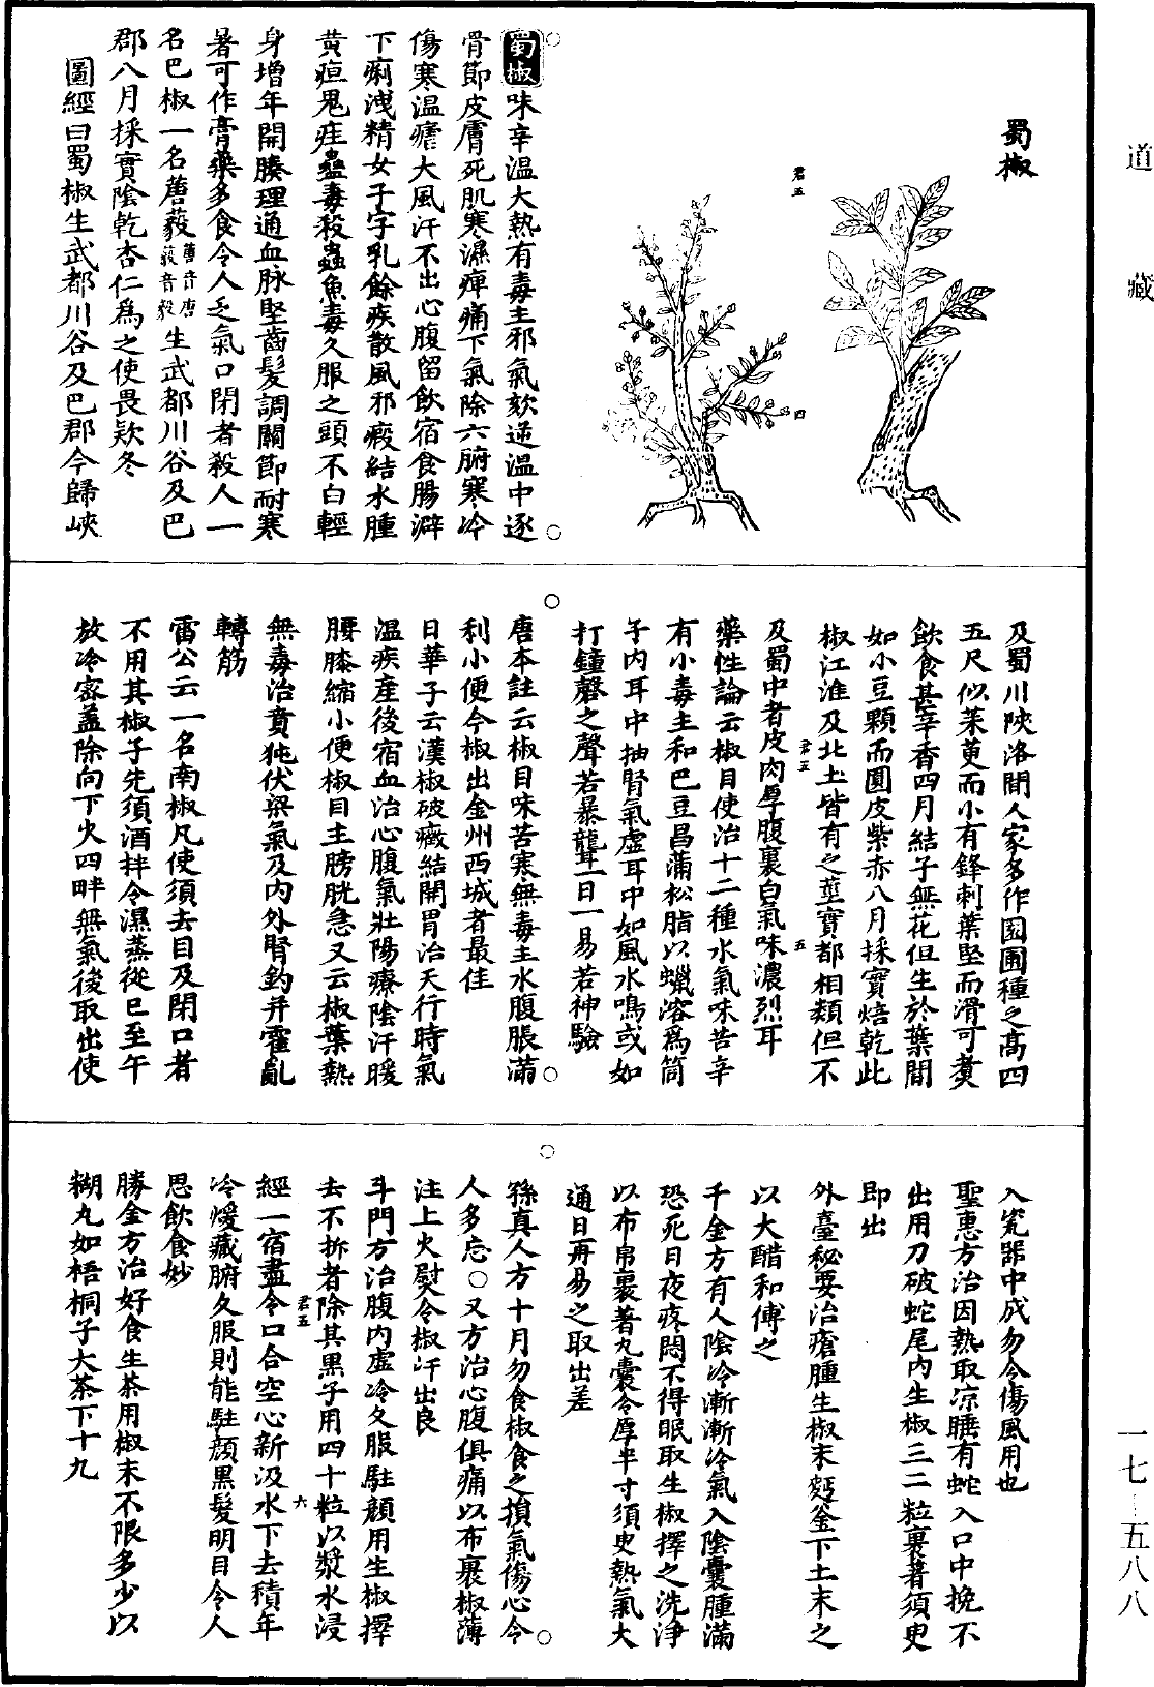 道藏
蜀椒
君五
四
蜀椒味辛溫大熱有毒主邪氣欬逆溫中逐
骨節皮膚死肌寒濕痺痛下氣除六腑寒冷
傷寒溫瘧大風汗不出心腹留飲宿食腸澼
下痢洩精女子字乳餘疾散風邪瘕結水腫
黃疸鬼疰蠱毒殺蟲魚毒久服之頭不白輕
身增年開腠理通血脉堅齒髮調關節耐寒
暑可作膏藥多食令人乏氣口閉者殺人一
名巴椒一名蓎藙蓎音唐藙音毅生武都川谷及巴
郡八月採實陰乾杏仁為之使畏欵冬
圖經曰蜀椒生武都川谷及巴郡今歸峽
及蜀川陝洛間人家多作園圃種之高四
五尺似茱萸而小有鋒刺葉堅而滑可煑
飲食甚辛香四月結子無花但生於葉間
如小豆顆而圓皮紫赤八月採實焙乾此
椒江淮及北土皆有之莖實都相類但不
君五
五
及蜀中者皮肉厚腹裏白氣味濃烈耳
藥性論云椒目使治十二種水氣味苦辛
有小毒主和巴豆昌蒲松脂以蠟溶為筒
子內耳中抽腎氣虛耳中如風水鳴或如
打鐘磬之聲若暴聾一日一易若神驗
唐本註云椒目味苦寒無毒主水腹脹滿
利小便今椒出金州西城者最佳
日華子云漢椒破癥結開胃治天行時氣
溫疾產後宿血治心腹氣壯陽療陰汗暖
腰膝縮小便椒目主膀胱急又云椒葉熱
無毒治賁㹠伏梁氣及內外腎釣并霍亂
轉筋
雷公云一名南椒凡使須去目及閉口者
不用其椒子先須酒拌令濕蒸從巳至午
放冷密蓋除向下火四畔無氣後取出使
入瓷器中成勿令傷風用也
聖惠方治因熱取凉睡有蛇入口中挽不
出用刀破蛇尾內生椒三二粒裹著須臾
即出
外臺秘要治瘡腫生椒末麪釜下土末之
以大醋和傅之
千金方有人陰冷漸漸冷氣入陰囊腫滿
恐死日夜疼悶不得眠取生椒擇之洗淨
以布帛裹著丸囊令厚半寸須臾熱氣大
通日再易之取出差
孫真人方十月勿食椒食之損氣傷心令
人多忘○又方治心腹俱痛以布裹椒薄
注上火熨令椒汗出良
斗門方治腹內虛冷久服駐顏用生椒擇
去不拆者除其黑子用四十粒以漿水浸
君五
六
經一宿盡令口合空心新汲水下去積年
冷煖藏腑久服則能駐顏黑髮明目令人
思飲食妙
勝金方治好食生茶用椒末不限多少以
糊丸如梧桐子大茶下十丸
一七—五八八